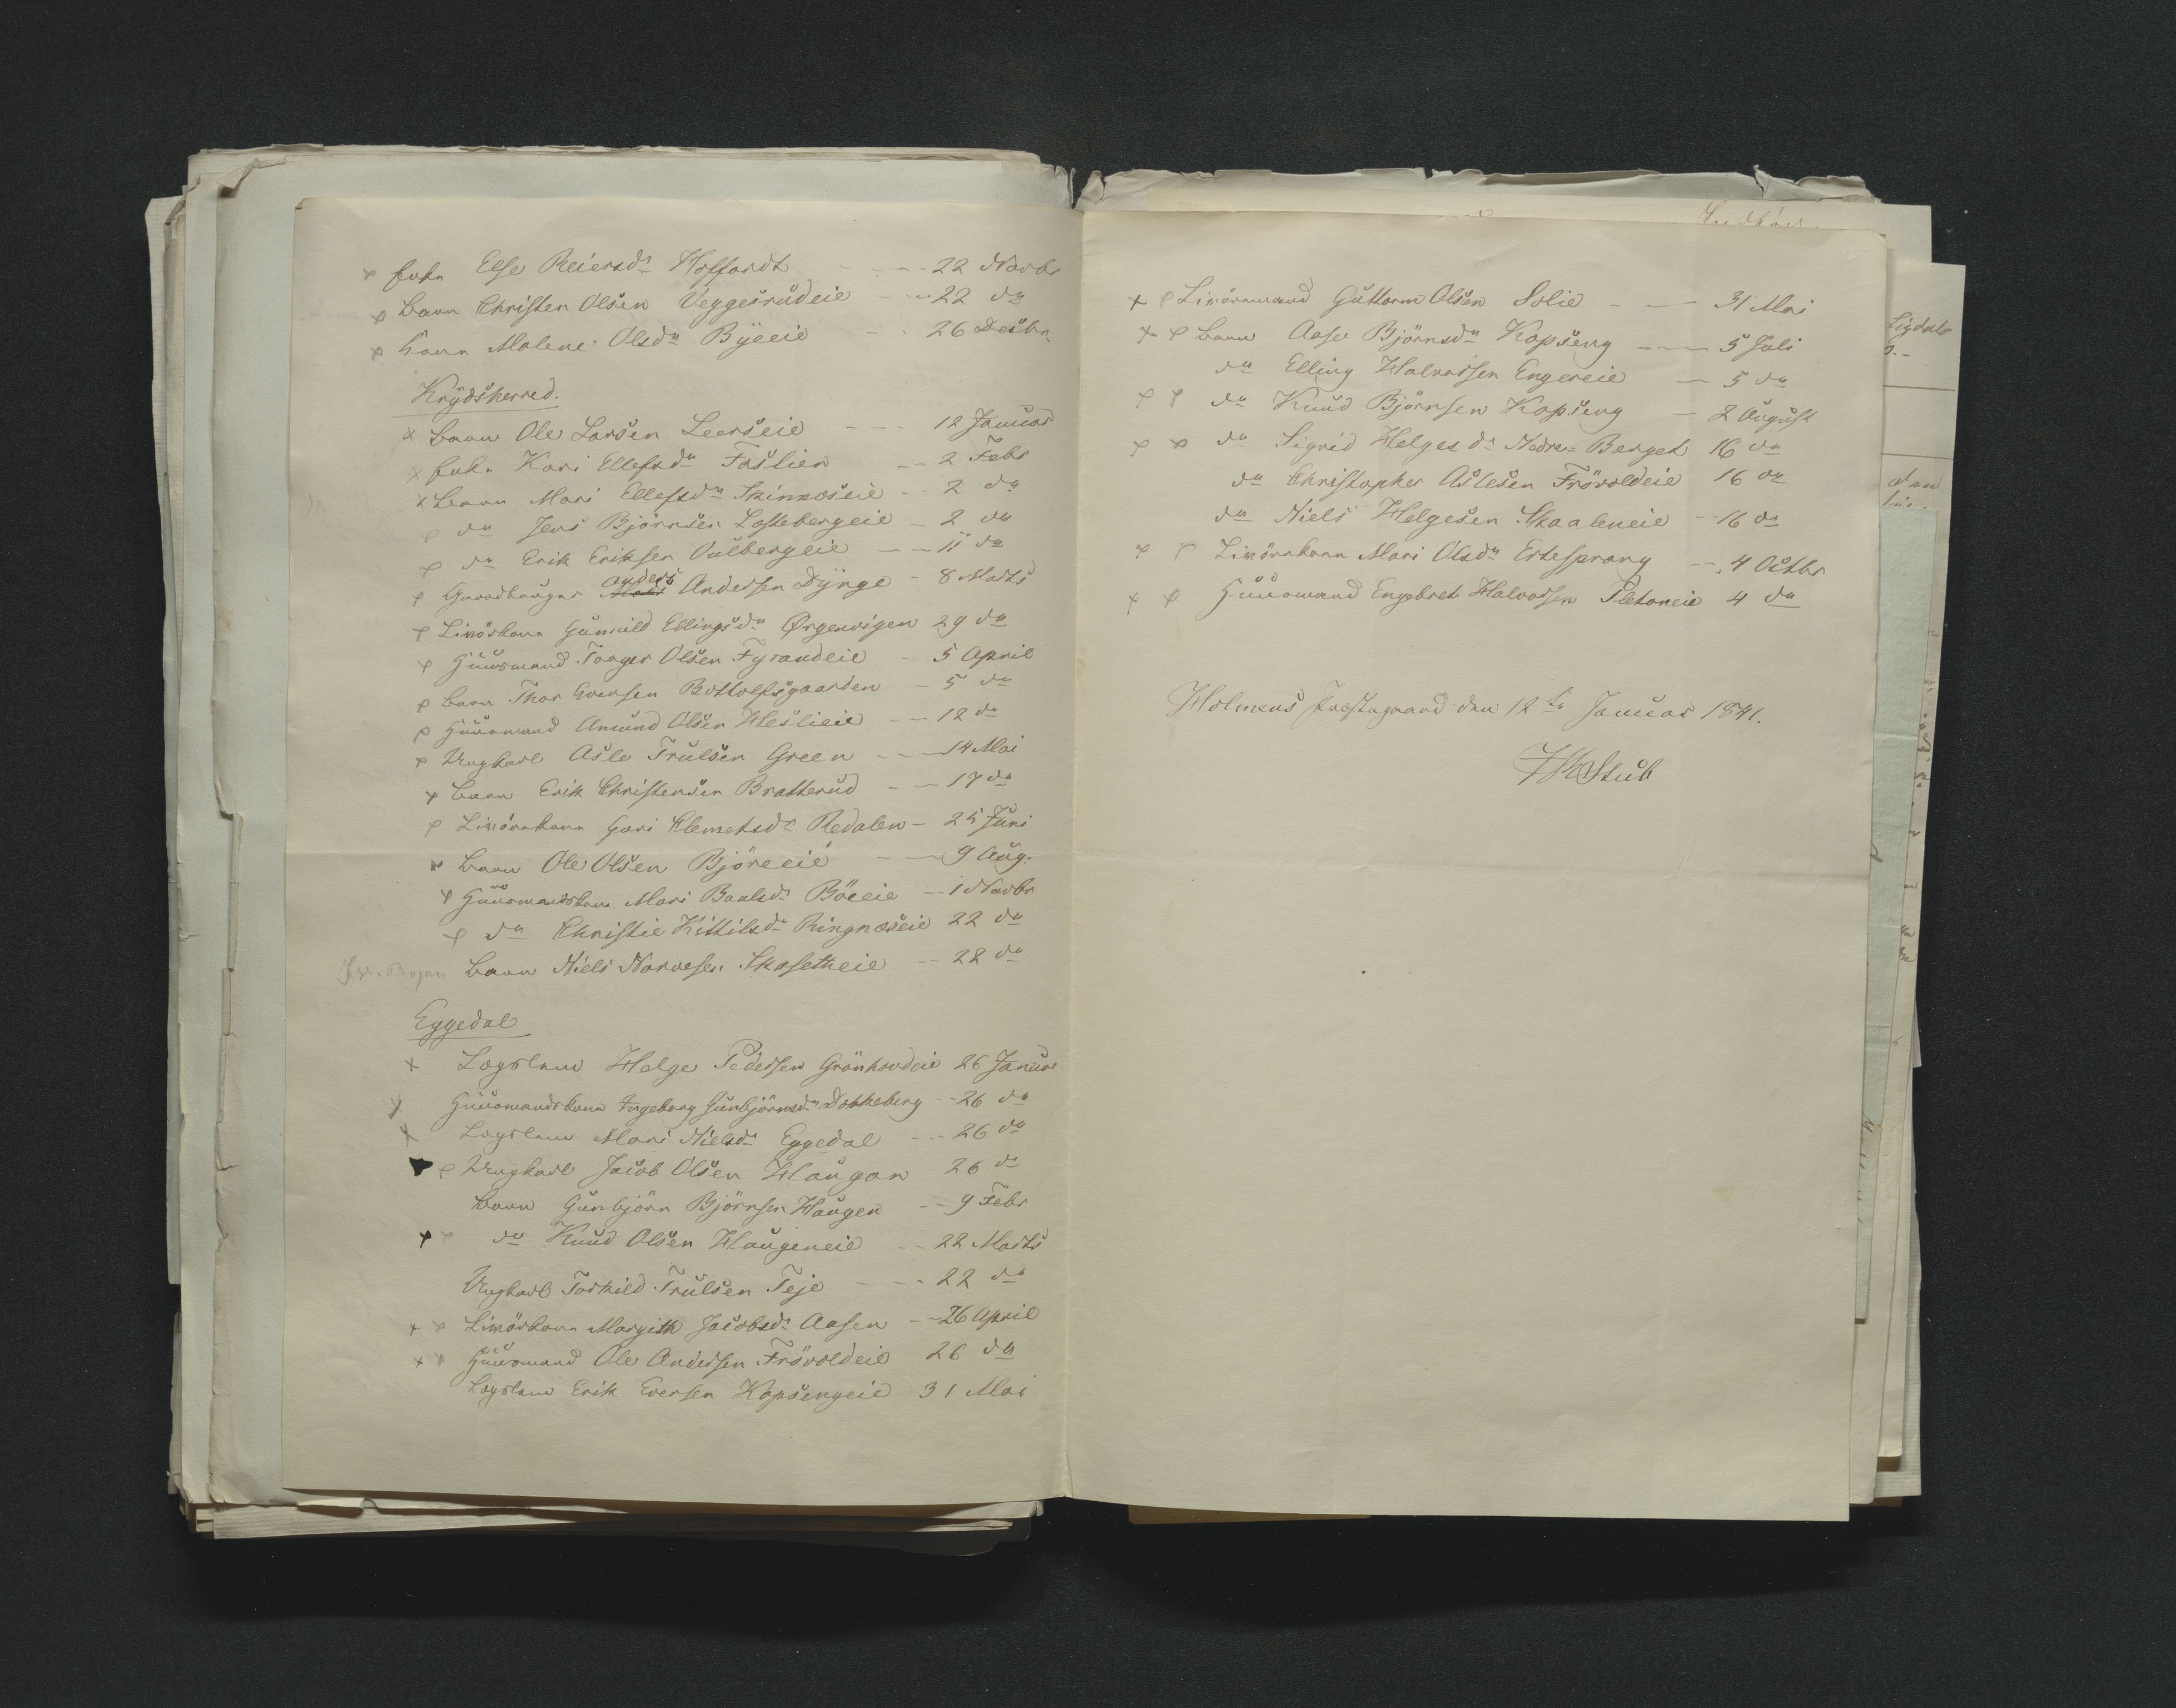 Enke Else Reiersdr Hoffardt - - - 22 Novbr
Barn Christen Olsen Veggesrudeie - - 22 do
Kone Malene Olsdr Byeeie - - 26 Decbr.
Krydsherred.
Barn Ole Larsen Leerseie - - - 12 Januar
Enke Kari Ellefsdr Foslien - - 2 Febr
Barn Mari Ellefsdr Skinnæseie - 2 do
do Jens Björnsen Loftebergeie - 2 do
do Erik Eriksen Oulbergeie - - 11 do
Gaardbruger Anders Andersen Dynge - 8 Marts
Livörekone Gunnild Ellingsdr Ørgenvigen 29 do
Huusmand Torger Olsen Fyrandeie - 5 April
Barn Thor Evensen Bottolfsgaarden - 5 do
Huusmand Amund Olsen Heslieie - - 12 do
Ungkarl Asle Trulsen Green - - 14 Mai
Barn Erik Christensen Bratterud - - 17 do
Livörekone Guri Clemetsdr Redalen - 25 Juni
Barn Ole Olsen Björeeie - - 9 Aug.
Huusmandskone Mari Paulsdr Böeeie - 1 Novbr
do Christie Kittilsdr Ringnæseie 22 do
Barn Niels Narvesen Skasetheie - 28 do
Eggedal
Lægslem Helge Pedersen Grönhovdeie 26 Januar
Huusmandskone Ingeborg Gunbjörnsdr Dokkeberg - 26 do
Lægslem Mari Nielsdr Eggedal - - 26 do
Ungkarl Jacob Olsen Haugan 26 do
Barn Gunbjörn Björnsen Haugen - - 9 Febr
do Knud Olsen Haugeneie - - 22 Marts
Ungkarl Torkild Trulsen Teje - - - 22 do
Livörekone Margith Jacobsdr Aasen - - 26 April
Huusmand Ole Andersen Frövoldeie 26 do
Lægslem Erik Eversen Kopsengeie 31 Mai
Livöremand Guttorm Olsen Solie - - - 31 Mai
Barn Aase Björnsdr Kopseng - - - 5 Juli
do Elling Halvorsen Engereie - 5 do
do Knud Björnsen Kopseng - 2 August
do Sigrid Helgesdr Nedre-Berget 16 do
do Christopher Aslesen Frövoldeie 16 do
do Niels Helgesen Skaaleneie - 16 do
Livörekone Mari Olsdr Ertesprang - 4 Octbr
Huusmand Engebret Halvorsen Pletaneie 4 do
Holmens Præstegaard den 12te Januar 1841.
Stub
Sigdals